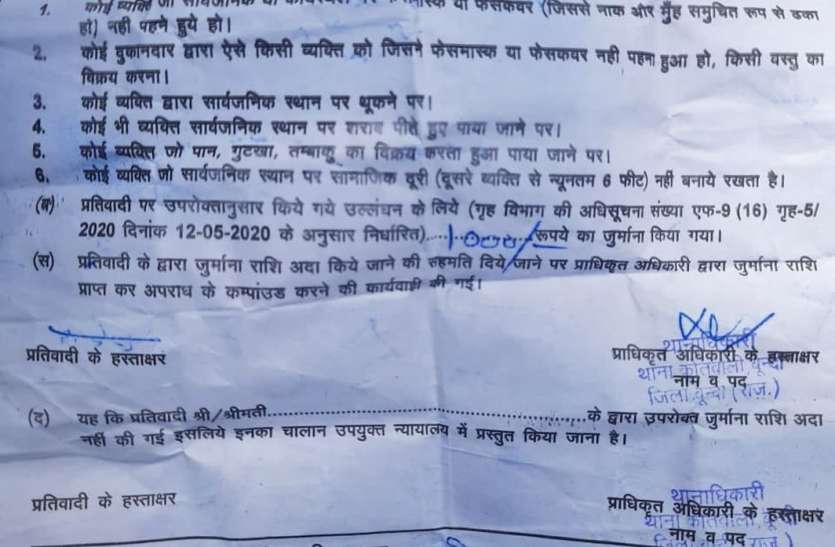 1. कोई व्यक्ति जो सार्वजनिक या फेसमास्क या फेसकवर (जिससे नाक और मुँह समुचित रूप से ढका
हो) नही पहने हुये हो।
2. कोई दुकानदार द्वारा ऐसे किसी व्यक्ति को जिसने फेसमास्क या फेसकवर नही पहना हुआ हो, किसी वस्तु का
विक्रय करना।
3. कोई व्यक्ति द्वारा सार्वजनिक स्थान पर थूकने पर।
4. कोई भी व्यक्ति सार्वजनिक स्थान पर शराब पीते हुए पाया जाने पर।
5. कोई व्यक्ति जो पान, गुटखा, तम्बाकु का विक्रय करता हुआ पाया जाने पर।
6. कोई व्यक्ति जो सार्वजनिक स्थान पर सामाजिक दूरी (दूसरे व्यक्ति से न्यूनतम 6 फीट) नहीं बनाये रखता है।
(ब) प्रतिवादी पर उपरोक्तानुसार किये गये उल्लंघन के लिये (गृह विभाग की अधिसूचना संख्या एफ-9 (16) गृह-5/
2020 दिनांक 12-05-2020 के अनुसार निर्धारित)....1000/-रूपये का जुर्माना किया गया।
(स) प्रतिवादी के द्वारा जुर्माना राशि अदा किये जाने की सहमति दिये जाने पर प्राधिकृत अधिकारी द्वारा जुर्माना राशि
प्राप्त कर अपराध के कम्पांउड करने की कार्यवाही की गई।
थानाधिकारी
प्रतिवादी के हस्ताक्षर प्राधिकृत अधिकारी के हस्ताक्षर
थाना कोतवाली, बून्दी
नाम व पद
जिला बून्दी (राज.)
(द) यह कि प्रतिवादी श्री/श्रीमती..........................................................के द्वारा उपरोक्त जुर्माना राशि अदा
नहीं की गई इसलिये इनका चालान उपयुक्त न्यायालय में प्रस्तुत किया जाना है।
थानाधिकारी
प्रतिवादी के हस्ताक्षर प्राधिकृत अधिकारी के हस्ताक्षर
थाना कोतवाली, बून्दी
नाम व पद